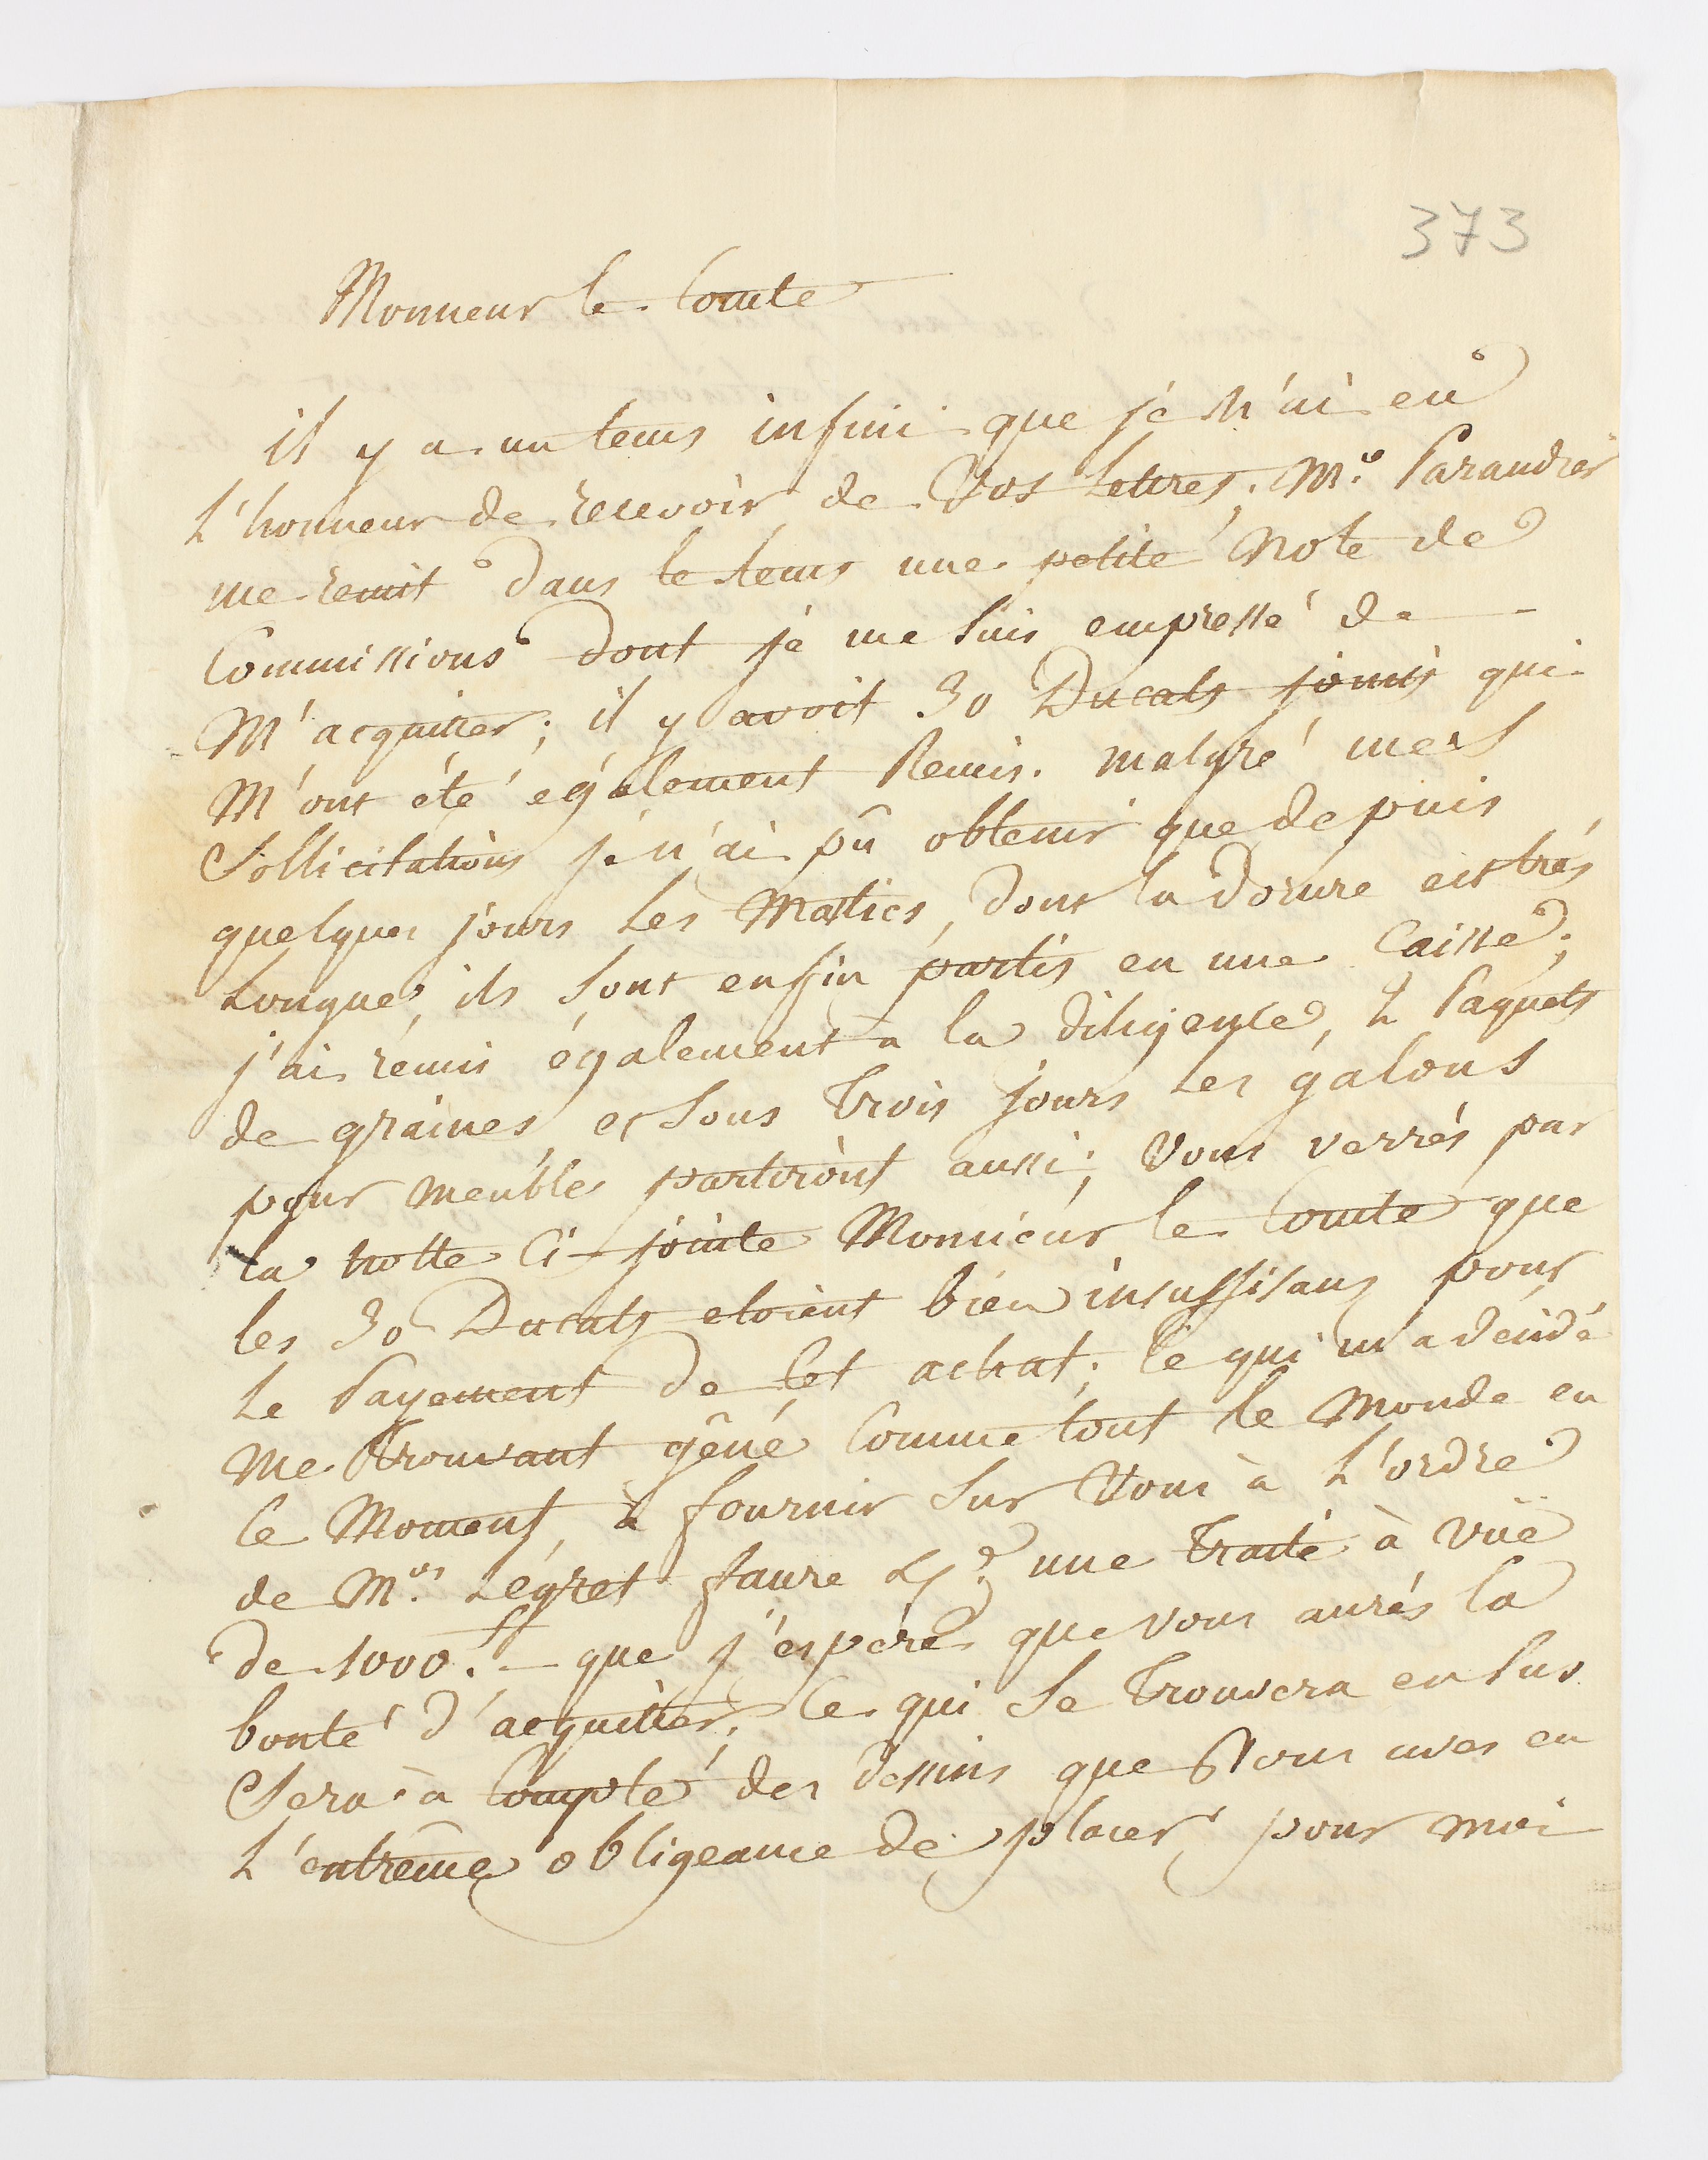 373
Monsieur le Comte
il y a un tems infini que je n'ai eu
L'honneur de recevoir de Vos Lettres. Mr. Parandier
me remit dans le tems une petite Note de
Commissions dont je me suis empressé de
M'acquitter; il y avoit 30 Ducats joints qui
M'ont été également Remis. malgré mes
Sollicitations je n'ai pû obtenir que depuis
quelques jours les Mastics, dont la dorure est très
Longue, ils sont enfin partis en une Caisse;
j'ai remis également à la diligence, 2 Paquets
de graines et sous Trois jours les galons
pour meubles partiront aussi; Vous verrés par
la notte Ci-jointe Monsieur le Comte que
les 30 Ducats etoient bien insuffisans pour
Le Payement de Cet achat; Ce qui m'a décidé
me Trouvant gêné Comme tout le Monde en
Ce Moment, à fournir sur Vous à L'ordre
de Mrs. Légret faure une Traite à vüe
de 1000.ff - que j'espère que vous aurés la
bonté d'acquitter, Ce qui Se Trouvera en sus
Sera à Compte des dessins que Vous aves eu
L'extrême obligeance de placer pour moi